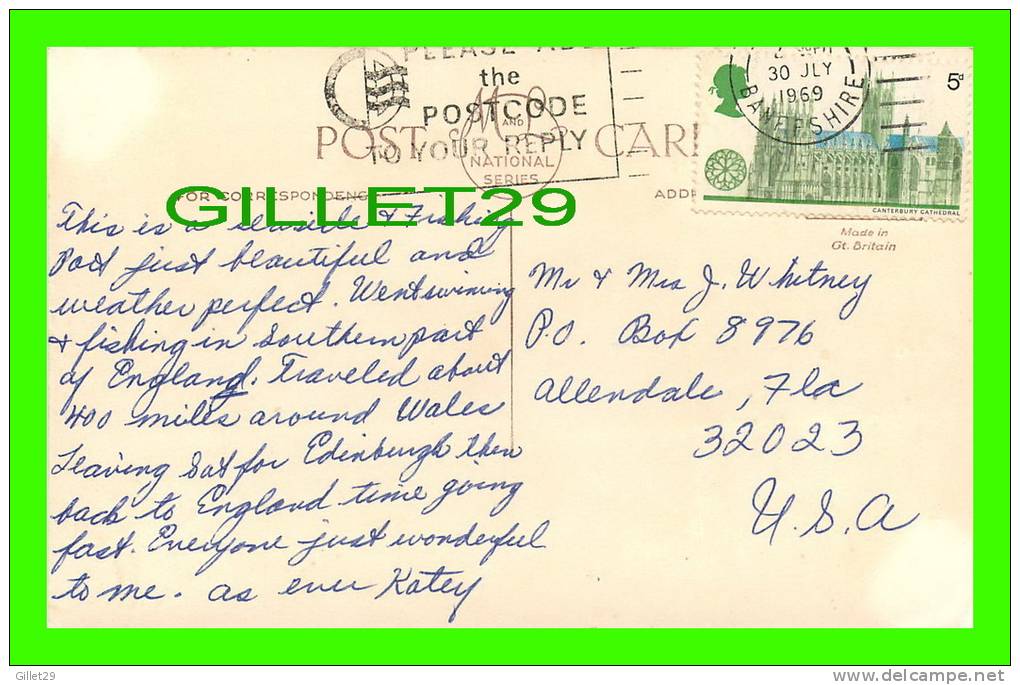 PLEASE AD
the
POSTCODE
TO YOUR REPLY
POST CAR
M AND L
NATIONAL
SERIES
30 JLY
1969
BANFFSHIRE
5d
CANTERBURY CATHEDRAL
FOR CORRESPONDENC
ADD
Made in
Gt. Britain
GILLET29
This is a seaside & Fishing
Port just beautiful and
weather perfect. Went swimming
& fishing in Southern part
of England. Traveled about
400 miles around Wales
Leaving Sat for Edinburgh then
back to England time going
fast. Everyone just wonderful
to me. as ever Katey
Mr & Mrs J. Whitney
P.O. Box 8976
Allendale, Fla
32023
U.S.A
Gillet29
www.delcampe.net